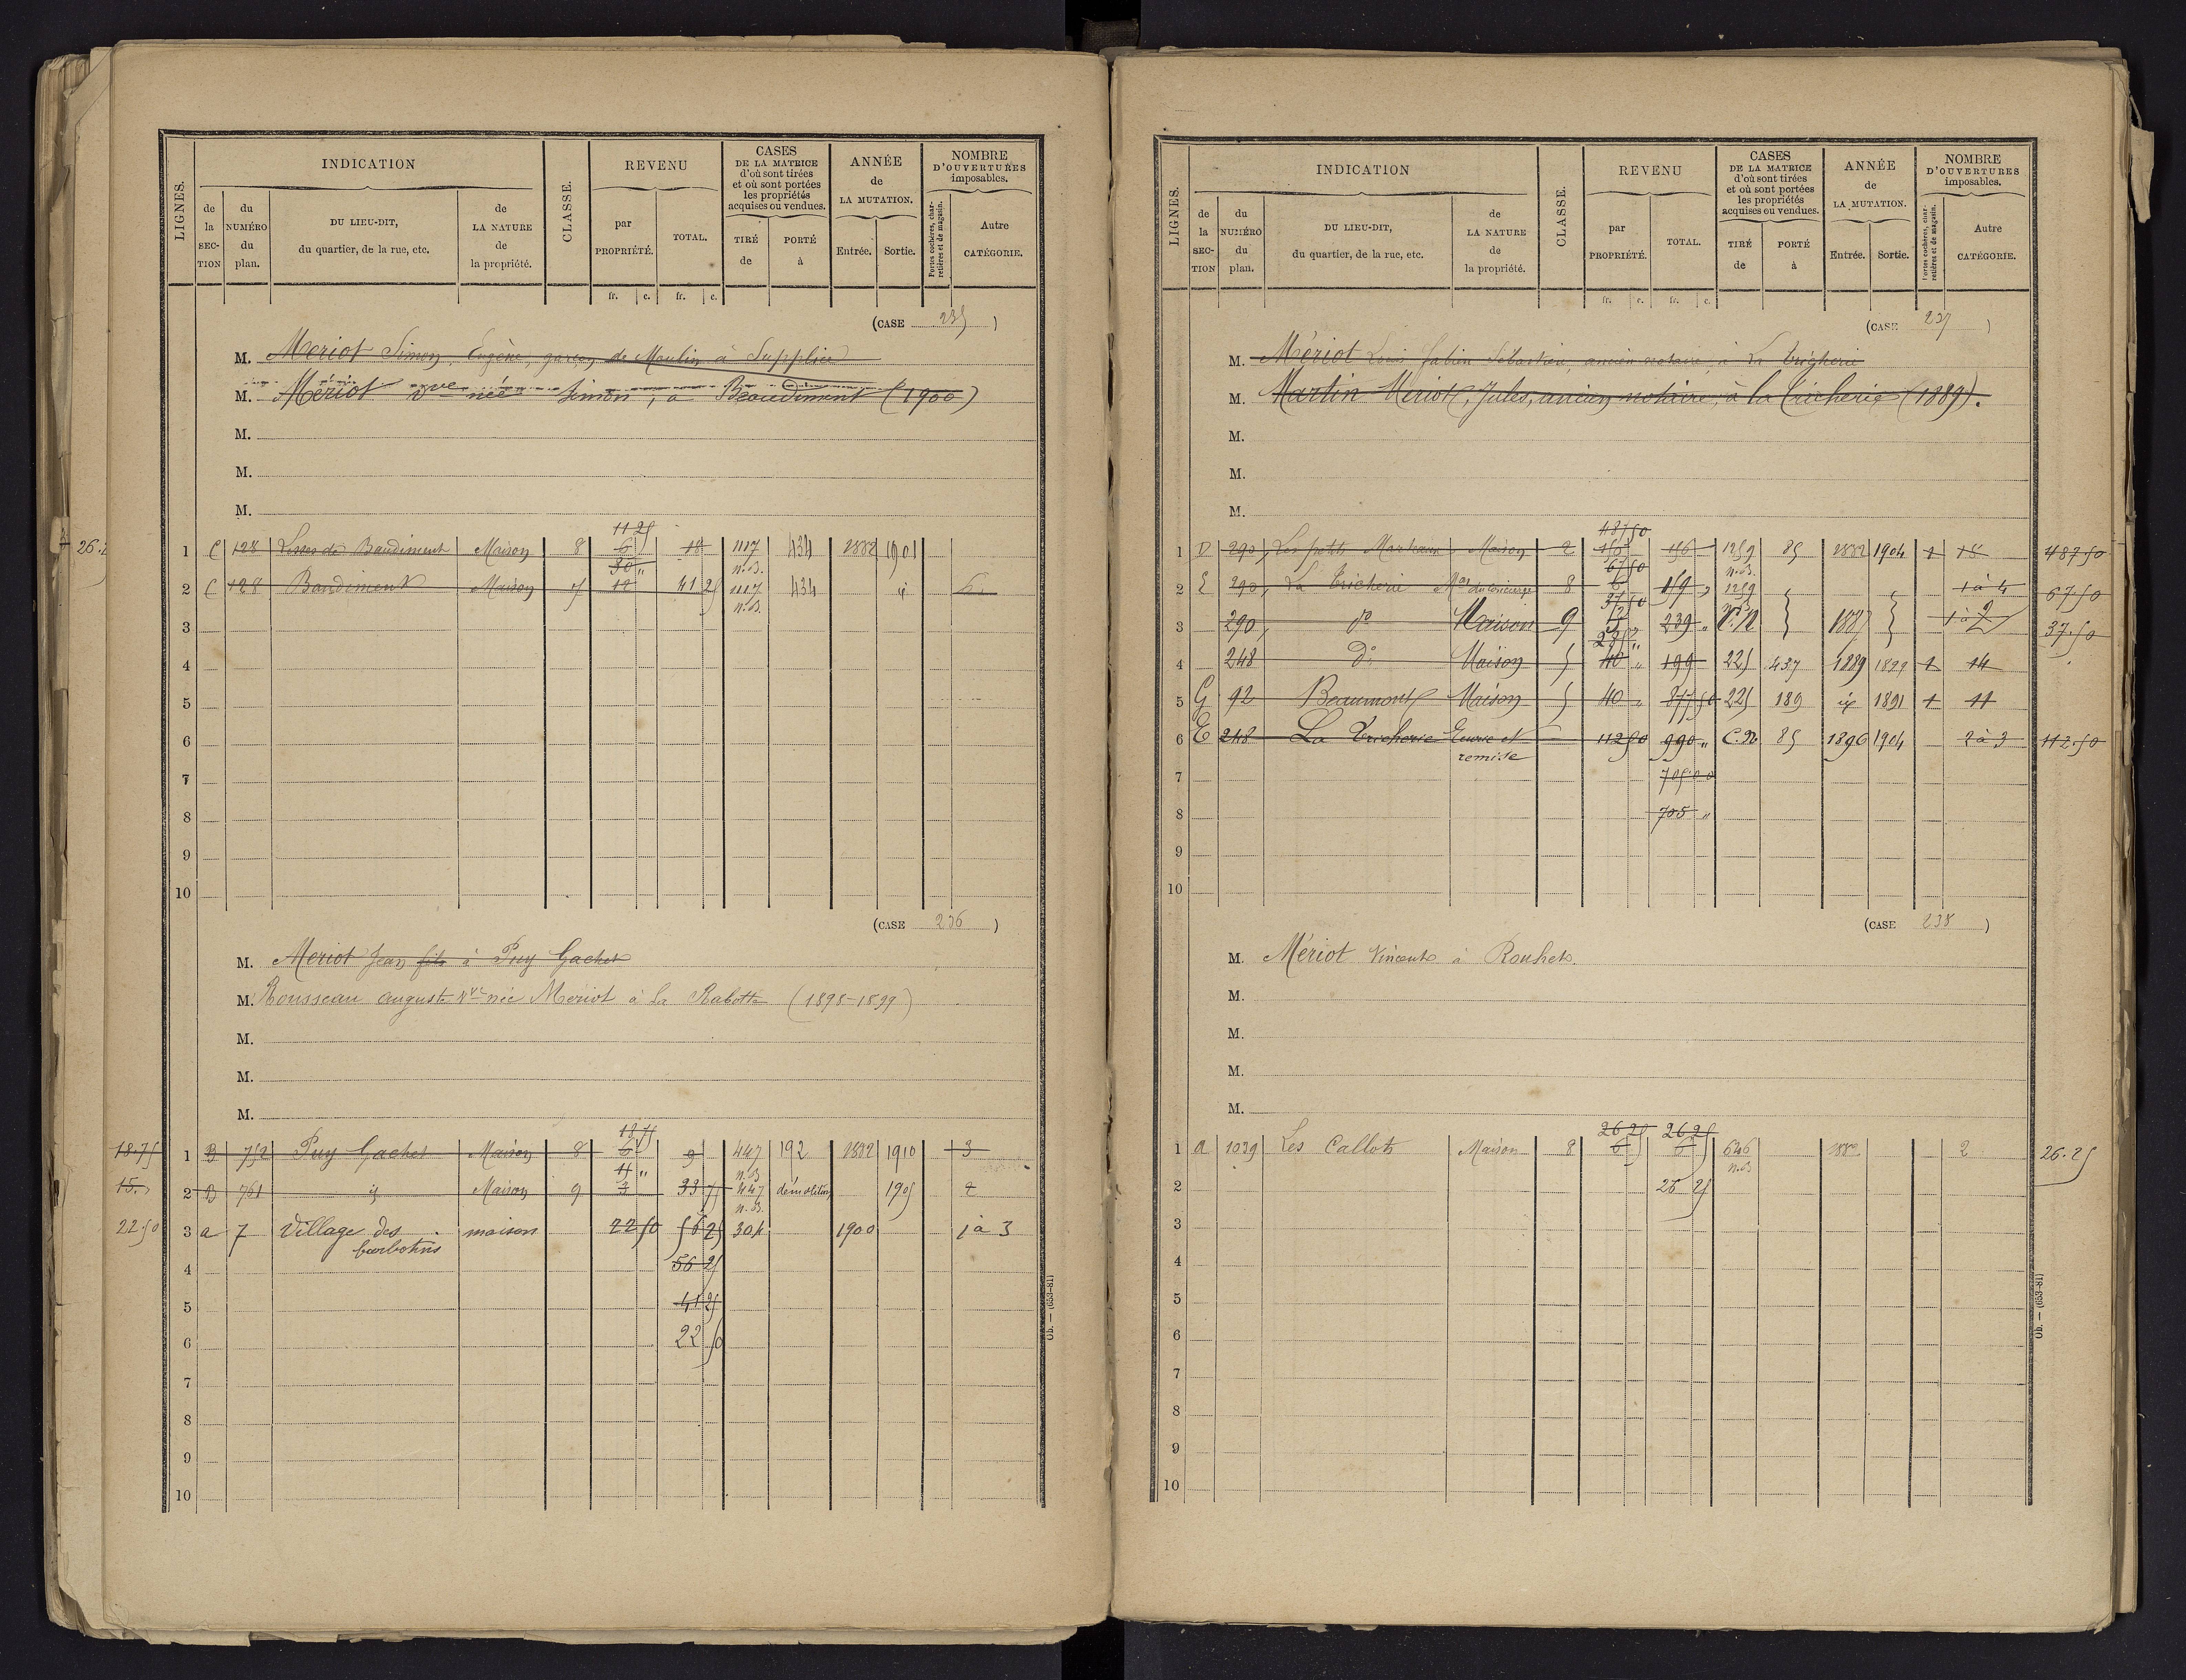 LIGNES.
INDICATION
de la SECTION
du NUMÉRO du plan.
DU LIEU-DIT, du quartier, de la rue, etc.
de LA NATURE de la propriété.
CLASSE.
REVENU
par PROPRIÉTÉ.
TOTAL.
CASES DE LA MATRICE d'où sont tirées et où sont portées les propriétés acquises ou vendues.
TIRÉ de
PORTÉ à
ANNÉE de LA MUTATION.
Entrée.
Sortie.
NOMBRE D'OUVERTURES imposables.
Portes cochères, charretières et de magasin.
Autre CATÉGORIE.
fr. c. fr. c.
(CASE 235)
M. Meriot Simon, Eugène, garçon de Moulin à Supplice
M. Mériot Vve née Simon, à Beaudiment (1900)
M.
M.
M.
11 25
1 C 128 Baudiment Maison 8 6 18 1117 434 1882 1901
30 " n.B.
2 C 128 Baudiment Maison 7 12 41 25 1117 434 id
n.B.
3
4
5
6
7
8
9
10
(CASE 236)
M. Meriot Jean fils à Puy Gachet
M. Rousseau auguste Vve née Meriot à la Rabotte (1898-1899)
M.
M.
M.
18 75
18.75 1 B 752 Puy Gachet Maison 8 6 9 447 192 1882 1910 3
n.B.
15. 2 B 761 id Maison 9 3 33 75 447 démolition 1905 2
n.B.
22.50 3 a 7 Village des maison 22 50 56 25 304 1900 1 à 3
barbotins
4 56 25
5 41 25
6 22 50
7
8
9
10
Ob. — (653-81)
LIGNES.
INDICATION
de la SECTION
du NUMÉRO du plan.
DU LIEU-DIT, du quartier, de la rue, etc.
de LA NATURE de la propriété.
CLASSE.
REVENU
par PROPRIÉTÉ.
TOTAL.
CASES DE LA MATRICE d'où sont tirées et où sont portées les propriétés acquises ou vendues.
TIRÉ de
PORTÉ à
ANNÉE de LA MUTATION.
Entrée.
Sortie.
NOMBRE D'OUVERTURES imposables.
Portes cochères, charretières et de magasin.
Autre CATÉGORIE.
fr. c. fr. c.
(CASE 237)
M. Mériot Louis fabien Sébastien, ancien notaire, à La Tricherie
M. Martin Mériot, Jules, ancien notaire, à la Tricherie (1889).
M.
M.
M.
487 50
1 D 290 Les petits Maison 2 150 156 1259 85 1882 1904 1 18 487.50
67 50 n.B.
2 E 290 La Tricherie Mon du concierge 8 6 159 1259 1 à 4 67.50
37 50
3 290 do Maison 9 239 " C.N 1887 1 à 2 37.50
4 248 do Maison 5 40 " 199 225 437 1889 1899 1 14
5 G 92 Beaumont Maison 5 40 " 877 50 225 189 id 1891 1 11
6 E 248 La Tricherie Ecurie et 112 50 990 " C.N 85 1896 1904 2 à 3 112.50
remise
7 705 00
8 705 "
9
10
(CASE 238)
M. Mériot Vincent à Rouhet.
M.
M.
M.
M.
26 25 26 25
1 a 1039 Les Callots Maison 8 6 6 646 2 26.25
n.B.
2 26 25
3
4
5
6
7
8
9
10
Ob. — (653-81)